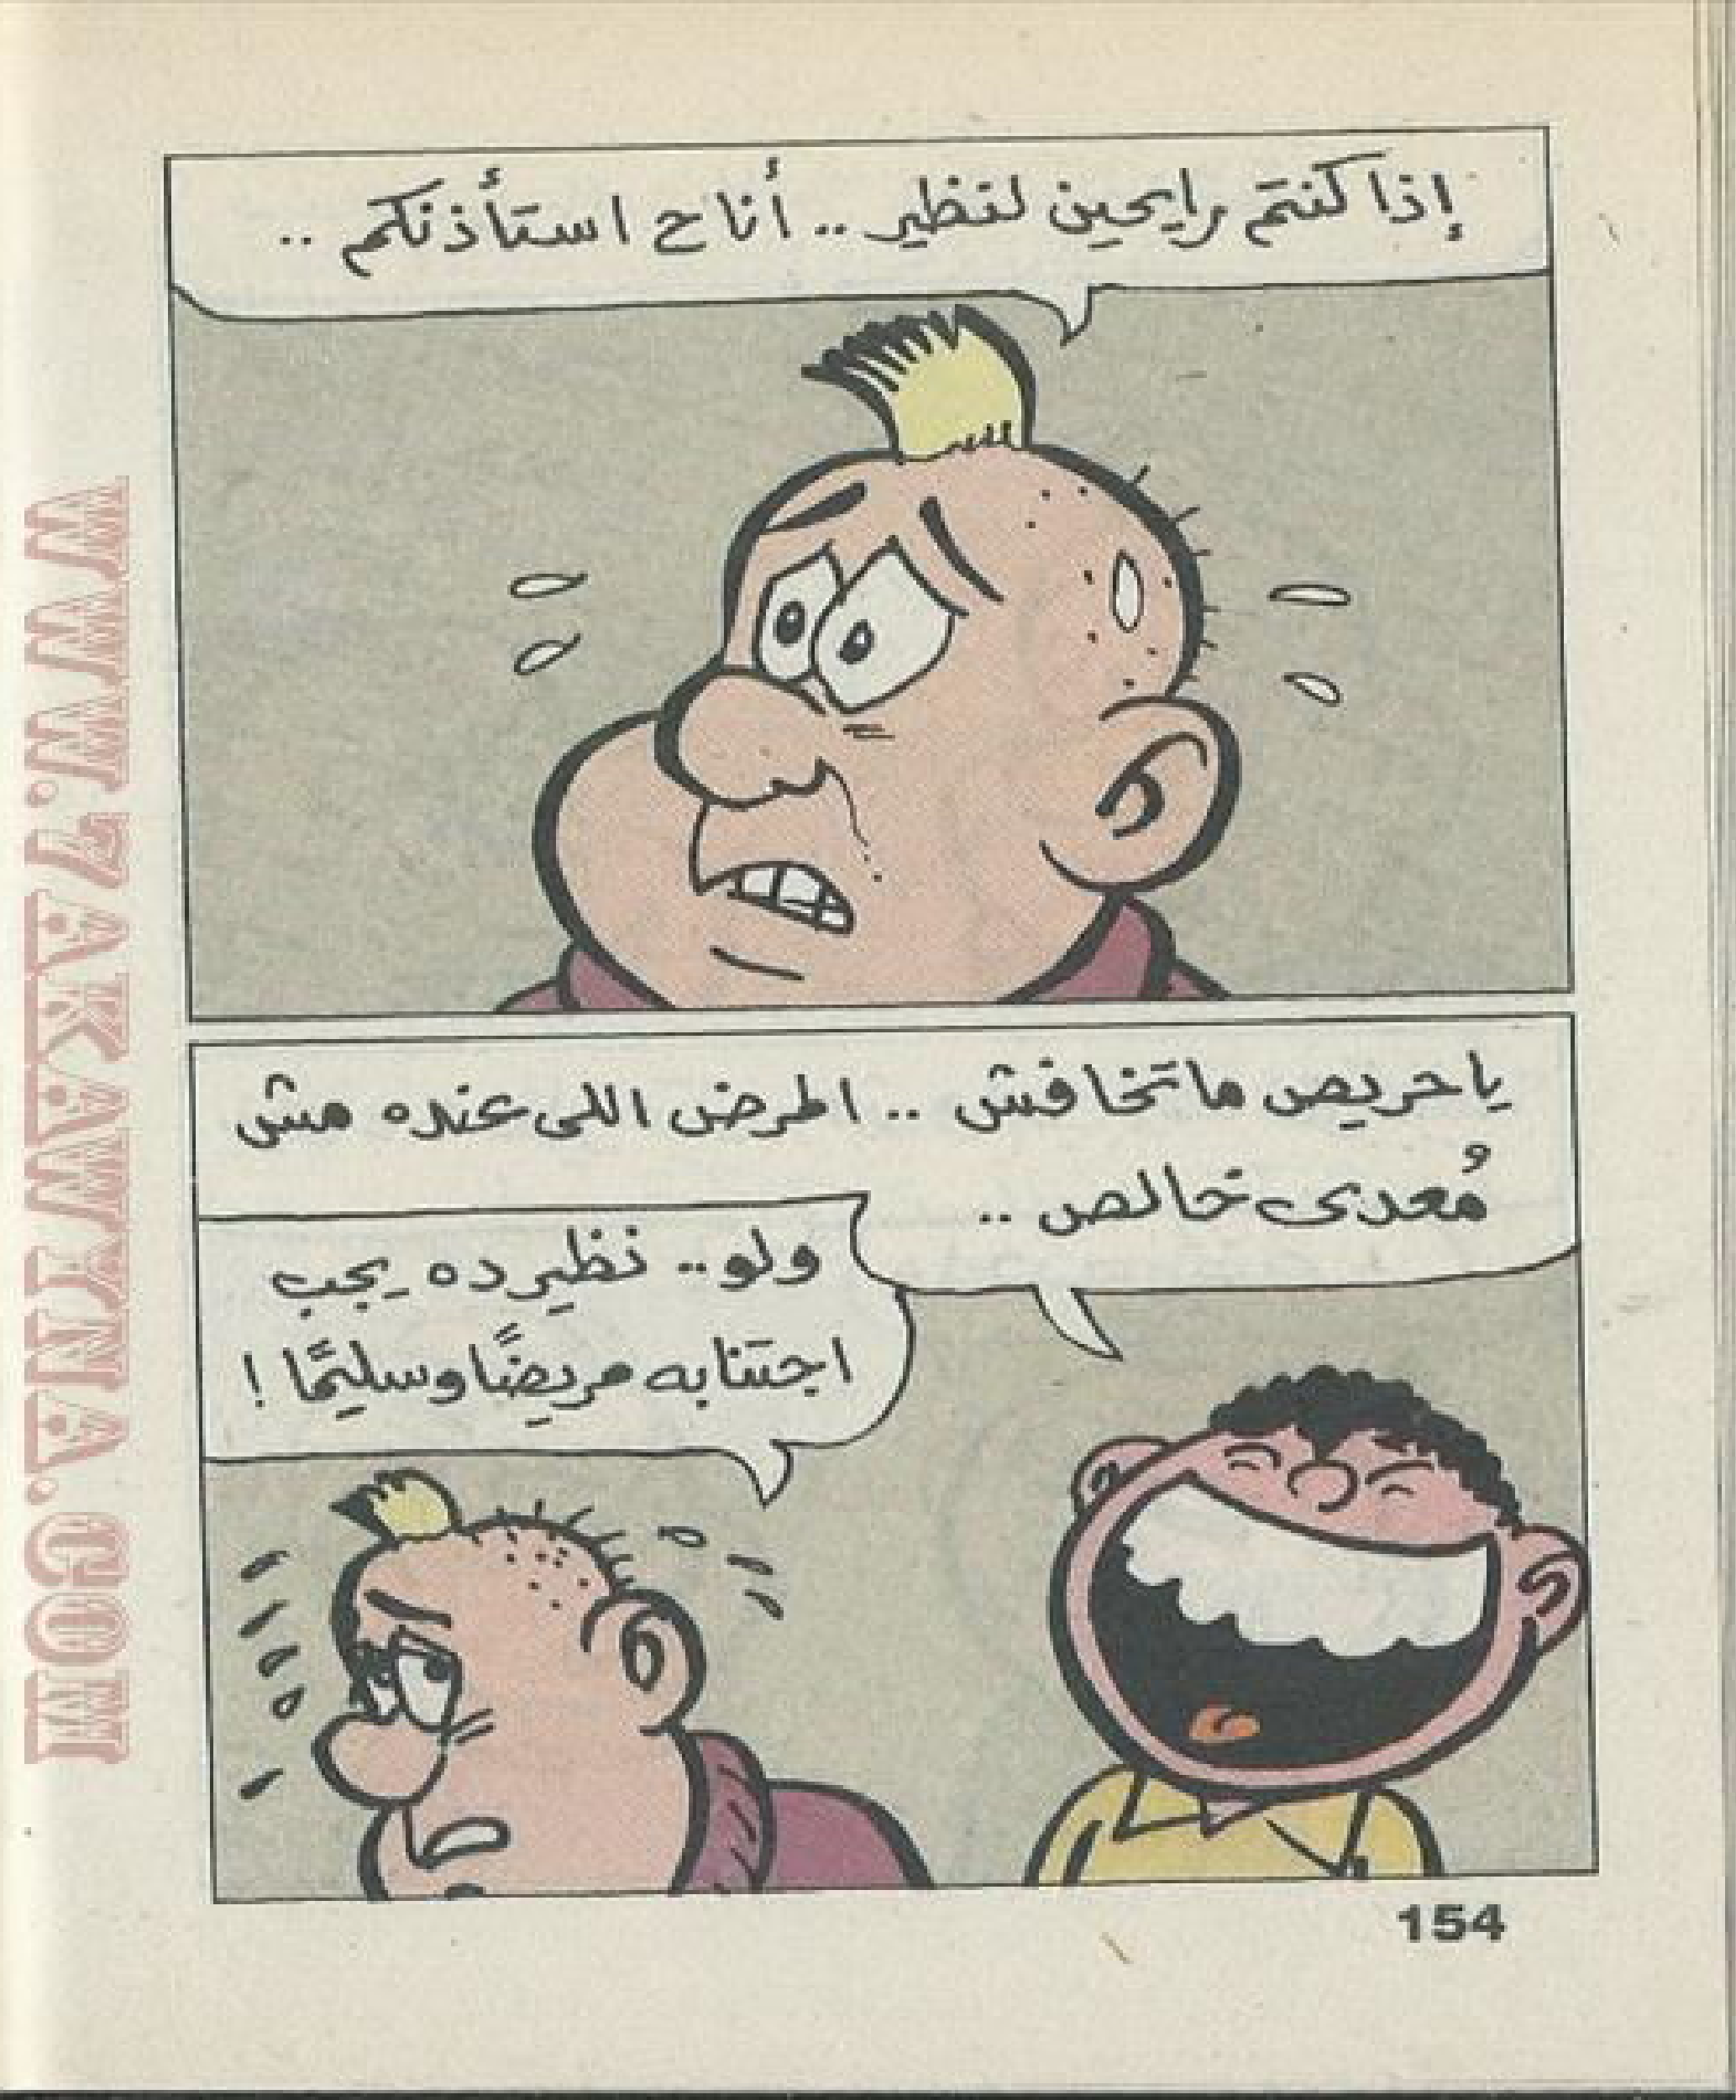 إذا كنتم رايحين لنظير .. أنا ح استأذنكم ..
يا حريص ما تخافش .. المرض اللى عنده مش
مُعدى خالص ..
ولو .. نظير ده يجب
اجتنابه مريضًا وسليمًا !
154
WWW.7AKAWINA.COM